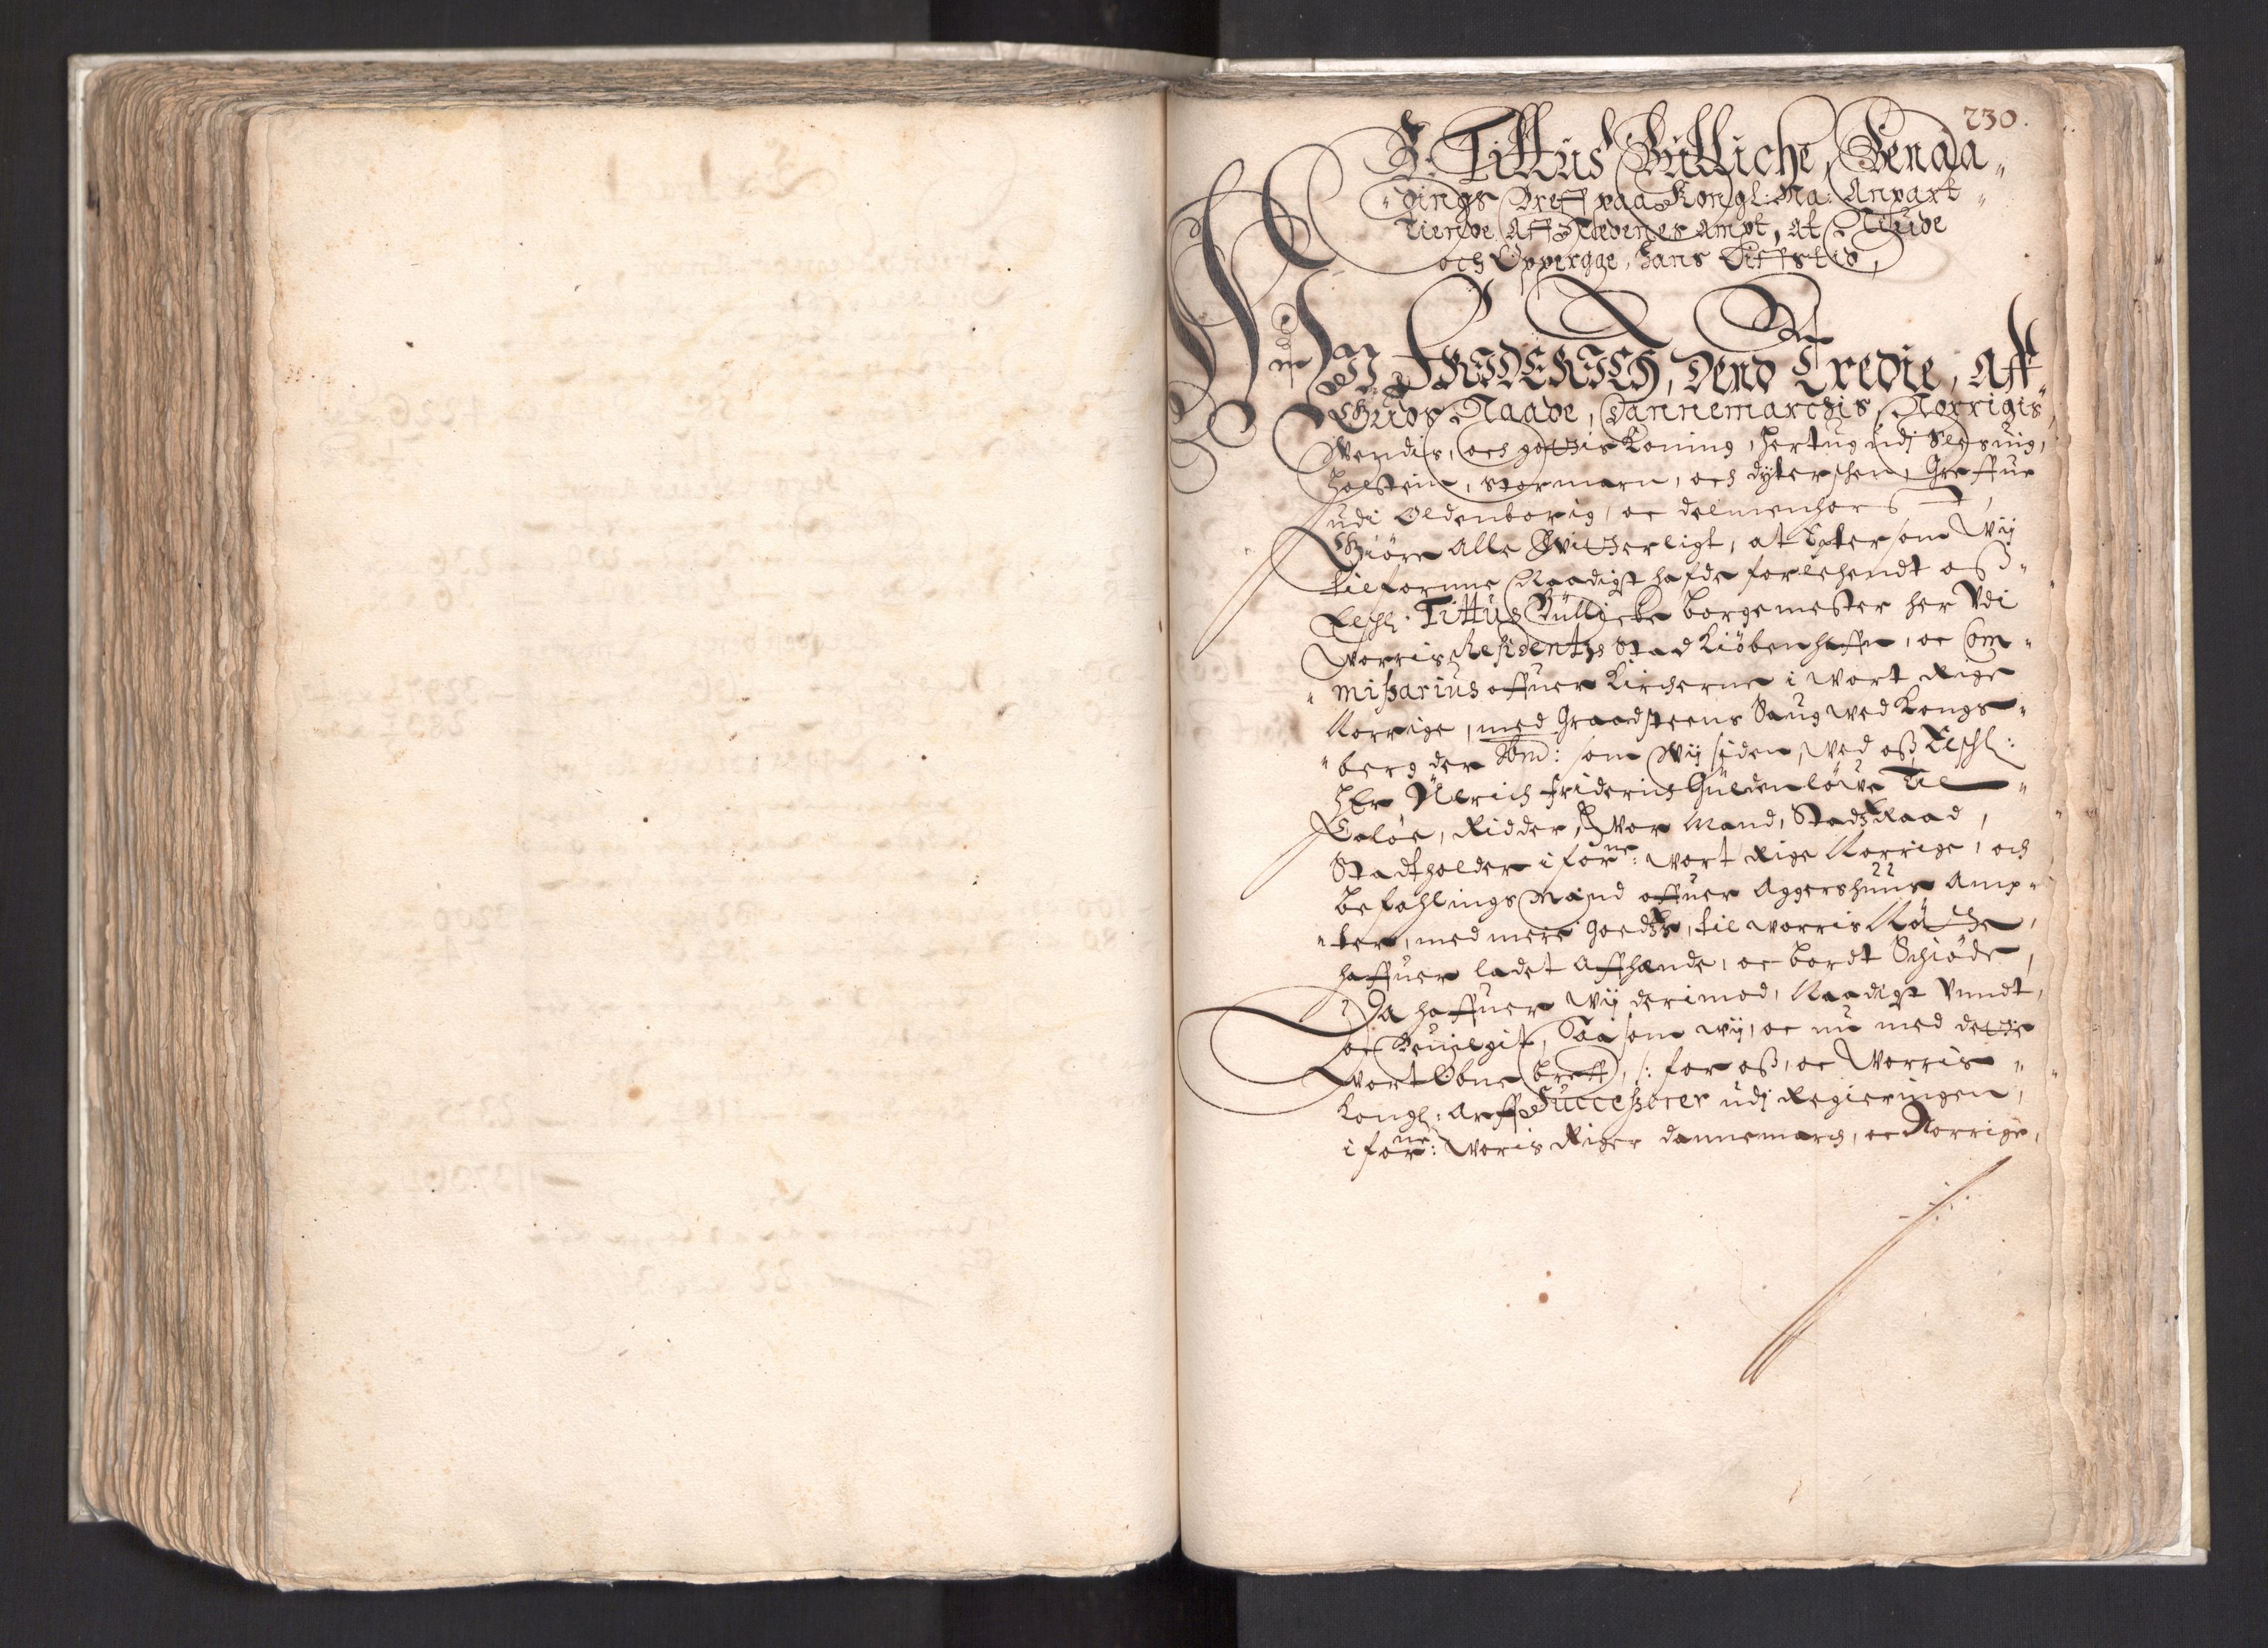 230.
H. Tittus Bülliche, Benaa„
„dings Breff paa Kongl: Ma: Anpart
Tiende Aff Nedenes Ampt, at Niude
och Oppergge, hans Liffstid,
WII FRIDERICH, Dend Tredie, Aff
Guds Naade, Dannemarchis, Norrigis
Wendis, och gottis Koning, Hertug udj Slesuig,
Holstein, Stormarn, och dyterschen, Greffue
udi Oldenborig, oc delmenhorst,
Giöre Alle Witterligt, at Epter som Wij
tilfornne Naadigst hafde forlehendt oß
Elschl. Tittus Bülliche borgemester her Udi
Worris Residentzs Stad Kiöbenhaffn, oc Com„
„mißarius offuer Kircherne i wort Rige
Norrige, med Graadsteens Saug wed Kongs„
„berg der som: som Wij siden, wed oß Elschl:
HEr Ülrich friderich Güldenlöwe Til
Ridder, Wor Mand, StadsRaad,
Stadtholder i forne: wort Rige Norrige, och
befahlings Mand offuer Aggershuus Amp„
„ter, med mere goedtz, til worris Nötte,
haffuer ladet Affhænde, oc bordt Schiöde,
Da haffuer wij derimod, Naadigst Undt,
oc Beuilgit, Saasom wij, oc nu med dette
wort obne breff, /: for oß, oc Worris
Kongl: Arffve Succeßorer udj Regieringen,
i forne: Woris Riger dannemarch, oc Norrige,